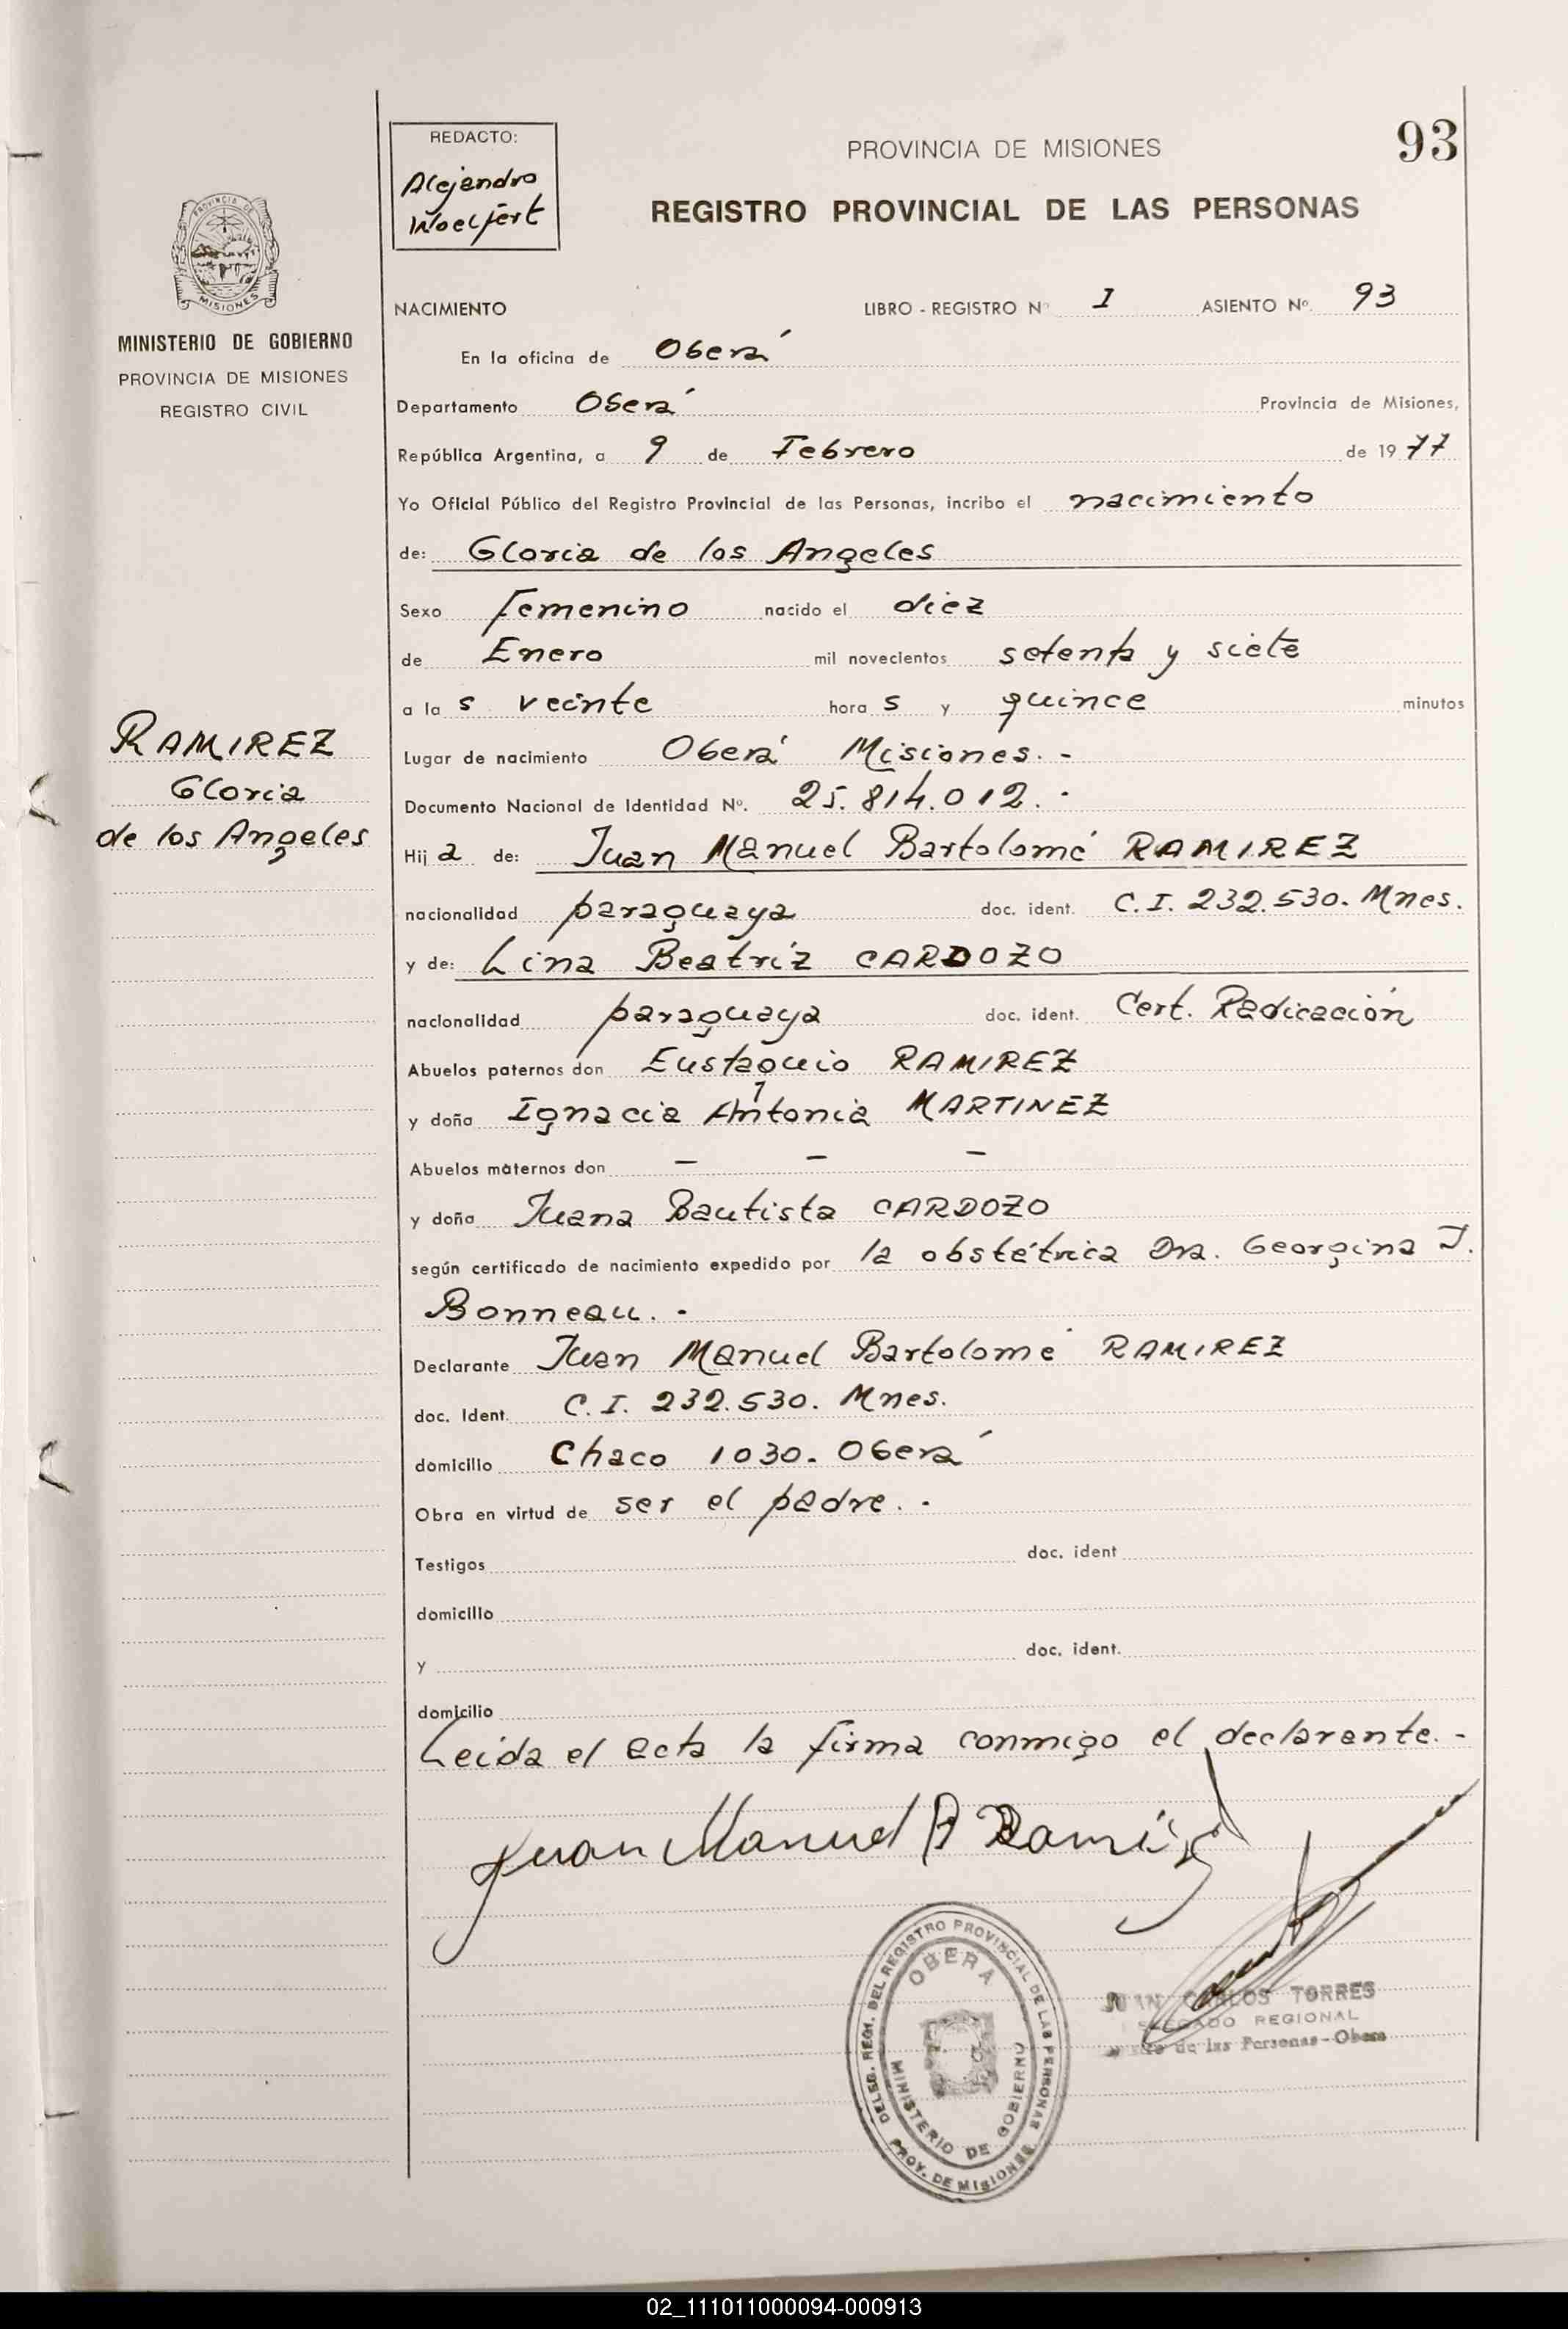 REDACTO:
Alejandro
Woelfert
PROVINCIA DE MISIONES
93
REGISTRO PROVINCIAL DE LAS PERSONAS
PROVINCIA DE
MISIONES
MINISTERIO DE GOBIERNO
PROVINCIA DE MISIONES
REGISTRO CIVIL
NACIMIENTO LIBRO - REGISTRO Nº I ASIENTO Nº. 93
En la oficina de Oberá
Departamento Oberá Provincia de Misiones,
República Argentina, a 9 de Febrero de 1977
Yo Oficial Público del Registro Provincial de las Personas, incribo el nacimiento
de: Gloria de los Angeles
Sexo femenino nacido el diez
de Enero mil novecientos setenta y siete
a la s veinte hora s y quince minutos
Lugar de nacimiento Oberá Misiones. -
Documento Nacional de Identidad Nº. 25.814.012. -
RAMIREZ
Gloria
de los Angeles
Hij a de: Juan Manuel Bartolomé RAMIREZ
nacionalidad paraguaya doc. ident. C.I. 232.530. Mnes.
y de: Lina Beatríz CARDOZO
nacionalidad paraguaya doc. ident. Cert. Radicación
Abuelos paternos don Eustaquio RAMIREZ
y doña Ignacia Antonia MARTINEZ
Abuelos maternos don — — —
y doña Juana Bautista CARDOZO
según certificado de nacimiento expedido por la obstétrica Dra. Georgina J.
Bonneau. -
Declarante Juan Manuel Bartolomé RAMIREZ
doc. Ident. C.I. 232.530. Mnes.
domicilio Chaco 1030. Oberá
Obra en virtud de ser el padre. -
Testigos doc. ident
domicilio
y doc. ident.
domicilio
Leida el acta la firma conmigo el declarante. -
Juan Manuel B Ramírez
DELEG. REGI. DEL REGISTRO PROVINCIAL DE LAS PERSONAS
OBERA
MINISTERIO DE GOBIERNO
PROV. DE MISIONES
JUAN CARLOS TORRES
REGIONAL
de las Personas - Obera
02_111011000094-000913